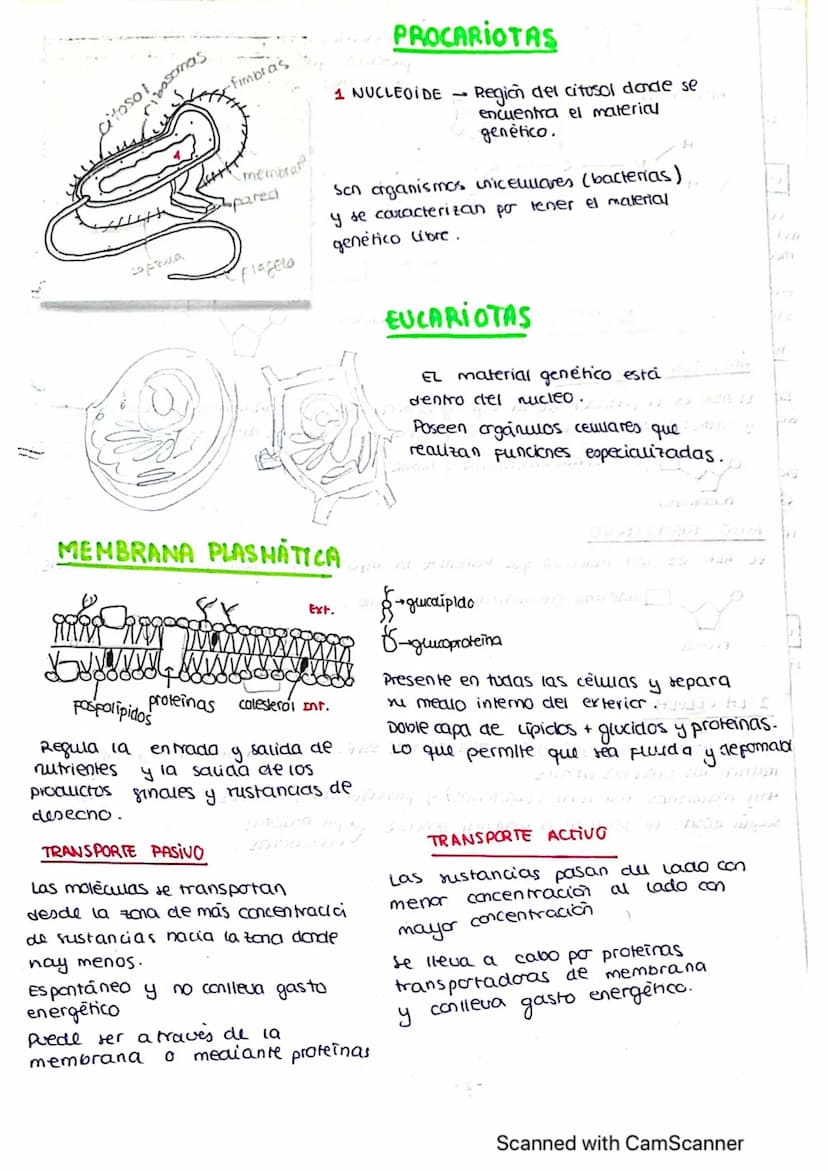 PROCARIOTAS
citosol
ribosomas
fimbrias
1
membrana
pared
capsula
flagelo
1 NUCLEOIDE → Región del citosol donde se
encuentra el material
genético.
Son organismos unicelulares (bacterias)
y se caracterizan por tener el material
genético libre.
EUCARIOTAS
El material genético está
dentro del nucleo.
Poseen orgánulos celulares que
realizan funciones especializadas.
MEMBRANA PLASMÁTICA
Ext.
fosfolípidos
proteínas
colesterol
Int.
→glucolípido
→glucoproteína
Presente en todas las células y separa
su medio interno del exterior.
Doble capa de lípidos + glucidos y proteínas.
Lo que permite que sea fluida y deformabl
Regula la entrada y salida de
nutrientes y la salida de los
productos finales y sustancias de
desecho.
TRANSPORTE PASIVO
Las moléculas se transportan
desde la zona de más concentració
de sustancias hacia la zona donde
hay menos.
Espontáneo y no conlleva gasto
energético
Puede ser a través de la
membrana o mediante proteínas
TRANSPORTE ACTIVO
Las sustancias pasan del lado con
menor concentración al lado con
mayor concentración
Se lleva a cabo por proteínas
transportadoras de membrana
y conlleva gasto energético.
- 2 -
Scanned with CamScanner